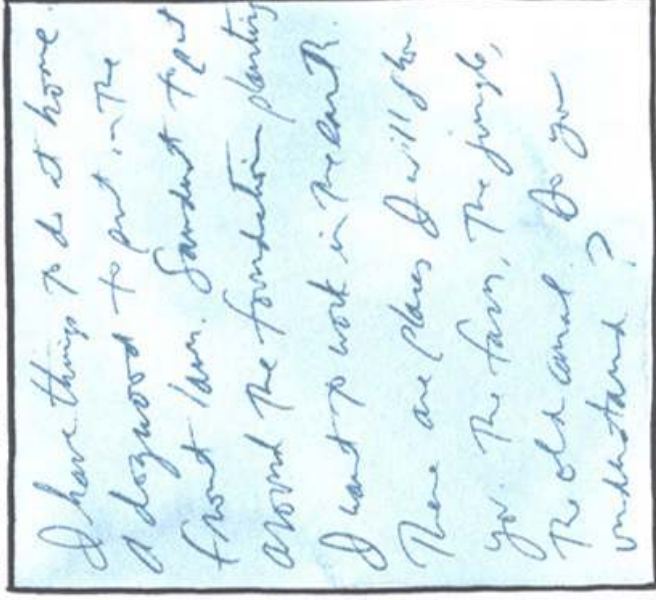 I have things to do at home.
A dogwood to put in the
front lawn. Sawdust to put
around the foundation planting
I want to work in the earth.
There are places I will show
you. The farm, The jungle,
The old canal. Do you
understand?